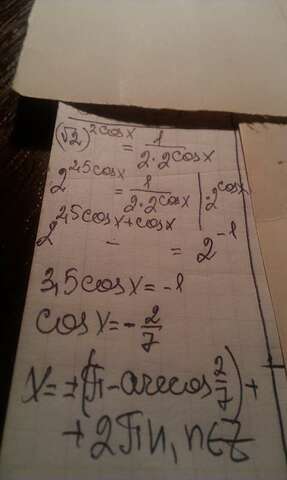 (√2)^{2cosx} = 1/(2·2^{cosx})
2^{2,5cosx} = 1/(2·2^{cosx}) | ·2^{cosx}
2^{2,5cosx+cosx} = 2^{-1}
3,5cosx = -1
cosx = -2/7
x = ±(π-arccos 2/7) +
+2πn, n∈Z